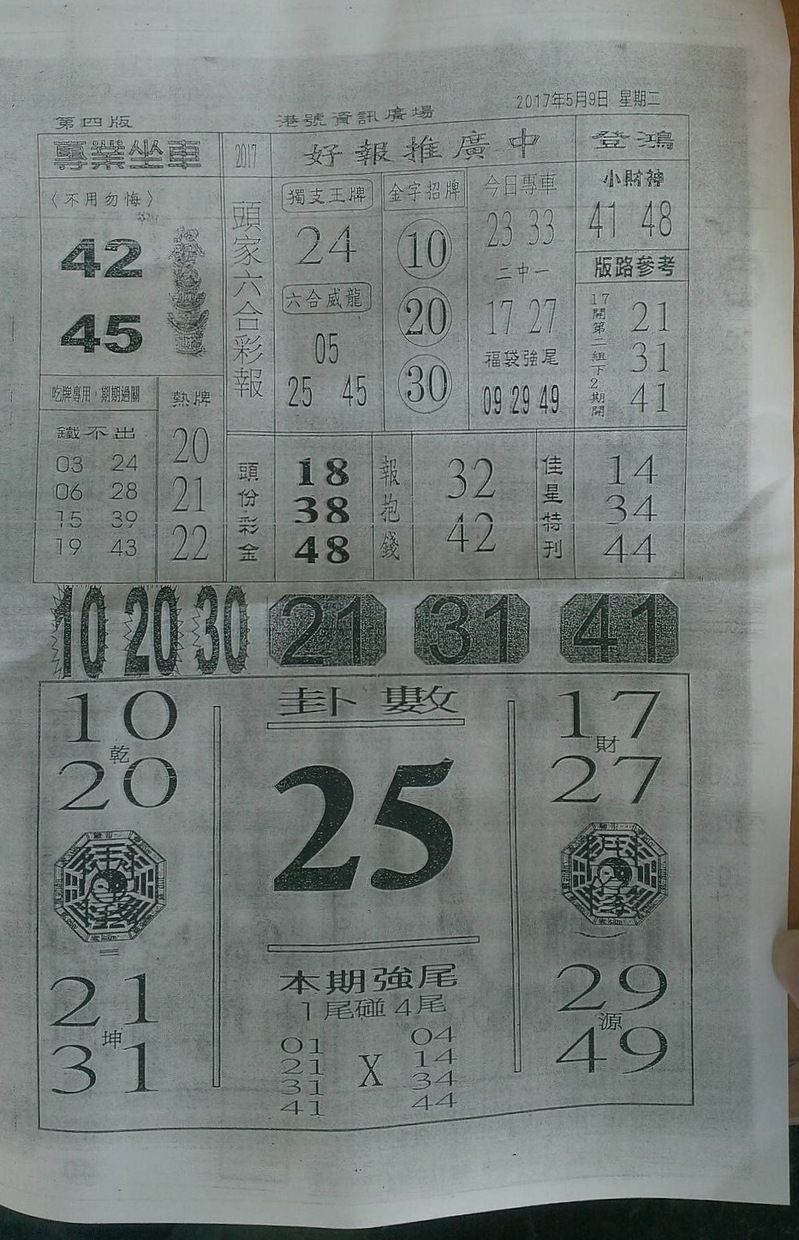 第四版
港號資訊廣場
2017年5月9日 星期二
專業坐車
〈不用勿悔〉
42
45
吃牌專用，期期過關
鐵不出
03 24
06 28
15 39
19 43
熱牌
20
21
22
2017
頭家六合彩報
好報推廣中
獨支王牌
24
六合威龍
05
25 45
金字招牌
10
20
30
今日專車
23 33
二中一
17 27
福袋強尾
09 29 49
登鴻
小財神
41 48
版路參考
17開第二組下2期開
21
31
41
頭份彩金
18
38
48
報抱錢
32
42
佳星特刊
14
34
44
10 20 30 21 31 41
10
乾
20
21
坤
31
卦數
25
本期強尾
1尾碰4尾
01 04
21 14
31 X 34
41 44
17
財
27
29
源
49